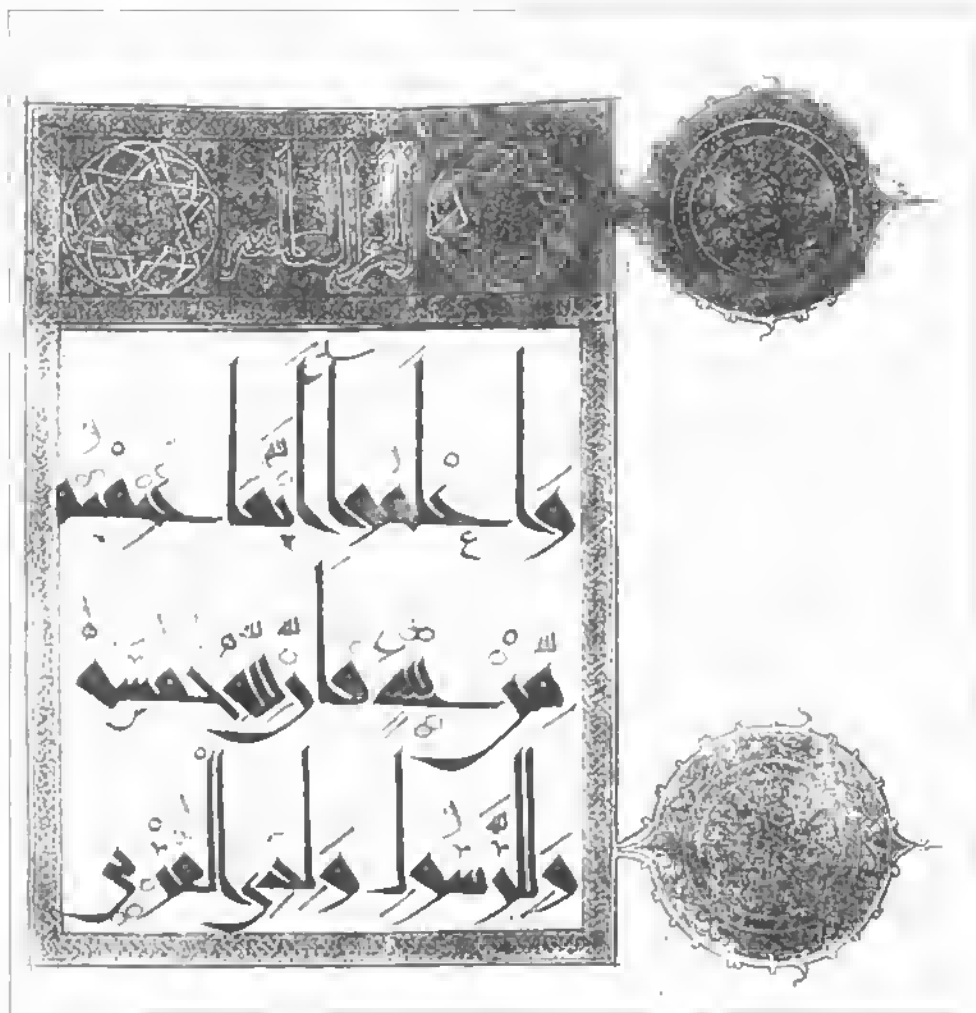 وَاعْلَمُوا أَنَّمَا غَنِمْتُمْ
مِّنْ شَيْءٍ فَأَنَّ لِلَّهِ خُمُسَهُ
وَلِلرَّسُولِ وَلِذِي الْقُرْبَىٰ